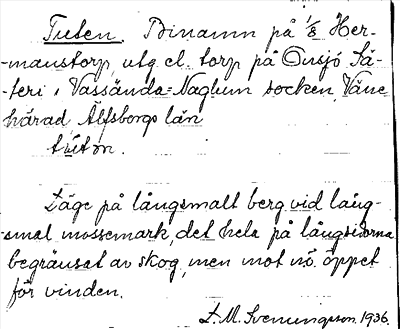 Tuten. Binamn på 1/8 Her-
-manstorp, utg el. torp på Onsjö Sä-
teri i Vassända-Naglum socken, Väne
härad, Älfsborgs län
tútǝn.
Läge på långsmalt berg vid lång-
-smal mossemark, det hela på långsidorna
begränsat av skog, men mot nö. öppet
för vinden.
L. M. Svenungsson. 1936.